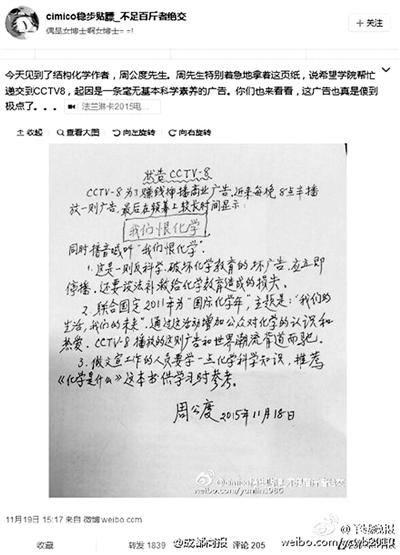 cimico稳步贴膘_不足百斤者绝交
偶是女博士啊女博士= =!
+关注
今天见到了结构化学作者，周公度先生。周先生特别着急地拿着这页纸，说希望学院帮忙
递交到CCTV8，起因是一条毫无基本科学素养的广告。你们也来看看，这广告也真是傻到
极点了。。。 法兰琳卡2015电...
收起 查看大图 向左旋转 向右旋转
状告CCTV-8
CCTV-8为了赚钱神播商业广告，近来每晚8点半播
放一则广告，最后在频幕上较长时间显示：
我们恨化学
同时播音喊叫“我们恨化学”。
1. 这是一则反科学、破坏化学教育的坏广告，应立即
停播，还要设法补救给化学教育造成的损失。
2. 联合国定2011年为“国际化学年”，主题是：“我们的
生活，我们的未来”，通过这活动增加公众对化学的认识和
热爱。CCTV-8播放的这则广告和世界潮流背道而驰。
3. 做文宣工作的人员要学一点化学科学知识，推荐
《化学是什么》这本书供学习时参考。
周公度 2015年11月18日
@cimico稳步贴膘
weibo.com/yumin1986
11月19日 15:17 来自 微博 weibo.com
收藏 转发 1839 评论 205
@成都商报